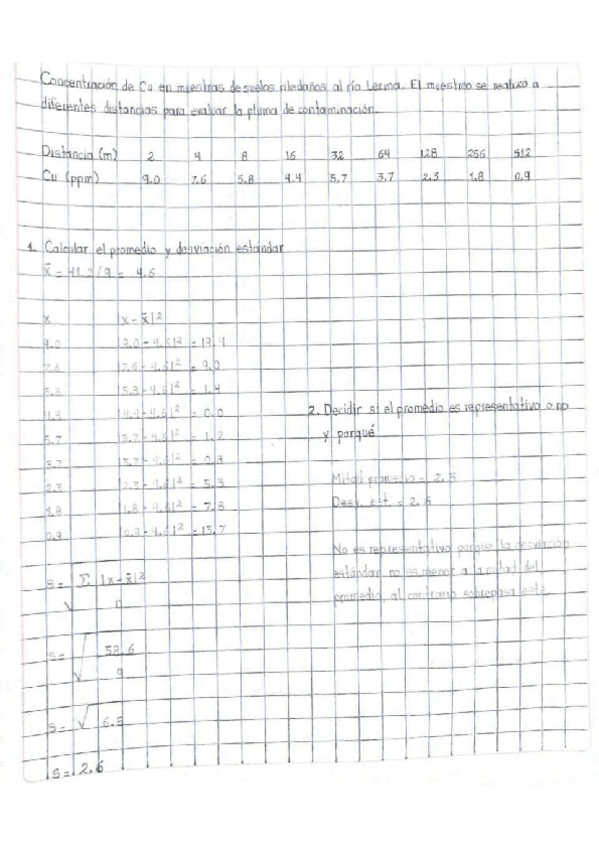 Concentración de Cu en muestras de suelos aledaños al río Lerma. El muestreo se realizó a
diferentes distancias para evaluar la pluma de contaminación.
Distancia (m) 2 4 8 16 32 64 128 256 512
Cu (ppm) 9.0 7.6 5.8 4.4 5.7 3.7 2.3 1.8 0.9
1. Calcular el promedio y desviación estandar
x̄ = 41.2/9 = 4.6
x |x - x̄|²
9.0 |9.0 - 4.6|² = 19.4
7.6 |7.6 - 4.6|² = 9.0
5.8 |5.8 - 4.6|² = 1.4
4.4 |4.4 - 4.6|² = 0.0
5.7 |5.7 - 4.6|² = 1.2
3.7 |3.7 - 4.6|² = 0.8
2.3 |2.3 - 4.6|² = 5.3
1.8 |1.8 - 4.6|² = 7.8
0.9 |0.9 - 4.6|² = 13.7
s = √ Σ |x - x̄|²
n
s = √ 58.6
9
s = √ 6.5
s = 2.6
2. Decidir si el promedio es representativo o no
y porqué
Mitad promedio = 2.3
Desv. est. = 2.6
No es representativo porque la desviación
estándar no es menor a la mitad del
promedio, al contrario sobrepasa esto.